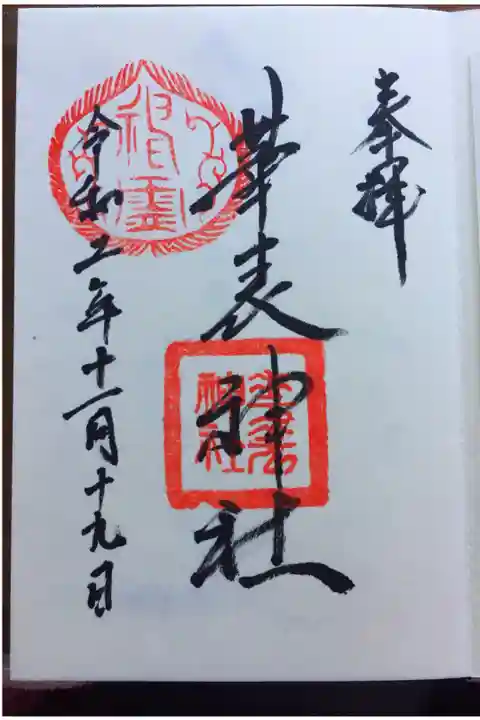 奉拝
華表神社
華表
神社
令和五年十一月十九日